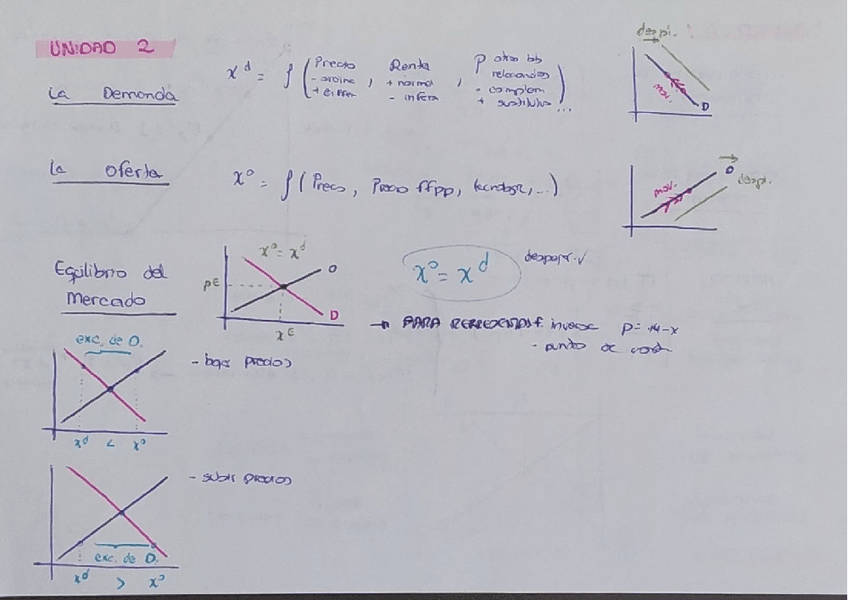 UNIDAD 2
La Demanda
x^d = f ( Precio , Renta , P otros bb
- ordine + normal relacionados
+ giffen - infer - complem
+ sustitutivo ... )
despl.
mov.
D
La Oferta
x^o = f ( Precio , Precio ffpp, tecnolog, ... )
mov.
O
despl.
Equilibrio del
Mercado
x^o = x^d
O
p^E
D
x^E
x^o = x^d
despejar √
→ PARA REPRESENTAR f. inversa p = 14 - x
- punto de corte
exc. de O.
x^d < x^o
- bajar precios
exc. de D.
x^d > x^o
- subir precios